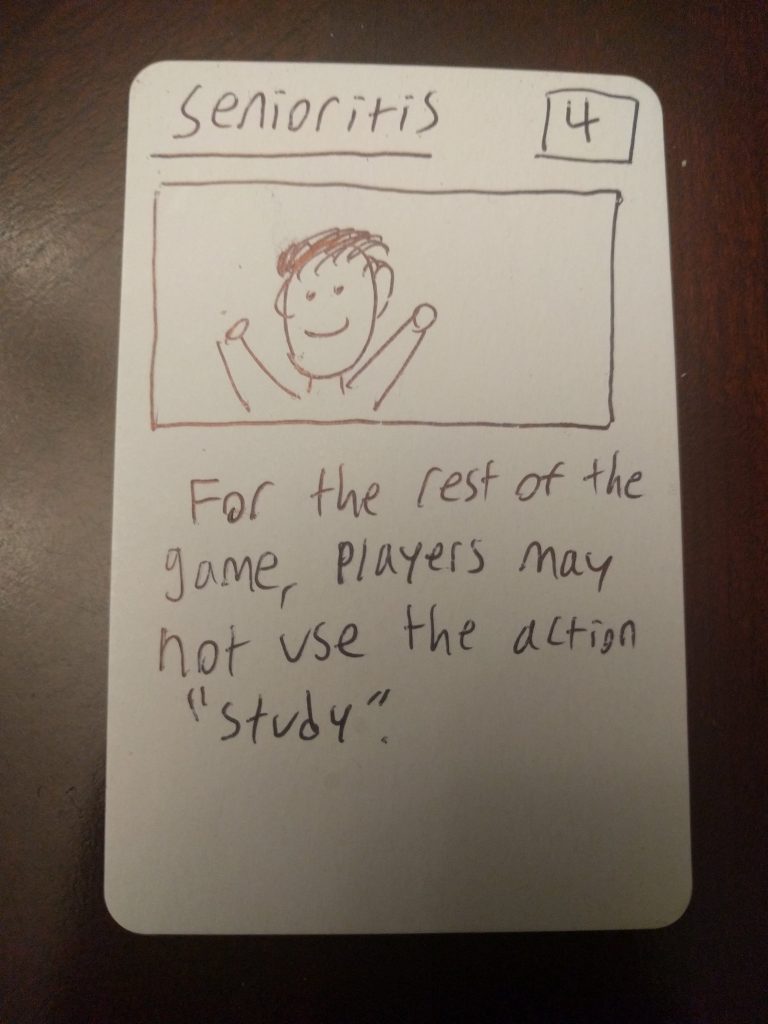 Senioritis 4
For the rest of the
game, players may
not use the action
"study".